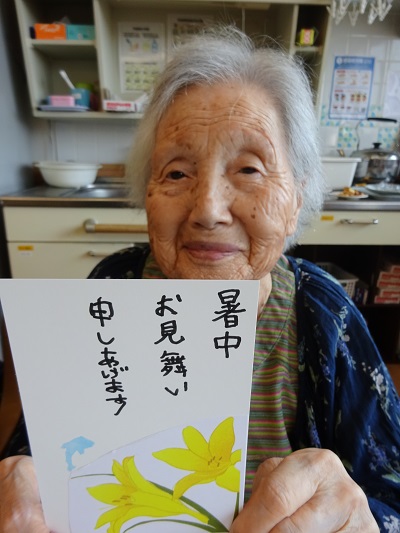 暑中
お見舞い
申しあげます